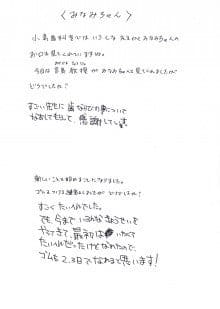 〈みなみちゃん〉
小島歯科室では いろんな 先生が みなみちゃんの
お口を見てくれていますね。
今日は 宮島 教授 が みなみちゃんを見てくれましたが
どうでしたか?
すごい先生に 歯ならびの事について
なおしてもらって、感謝しています
新しいことも始めることになりました。
ゴムをつける練習をしましたが どうでしたか?
すごく たいへんでした。
でも 今まで いろんな きょうせいを
やってきて、最初は いたくて
たいへんだったけどなれたので、
ゴムも 2、3日でなれると思います!